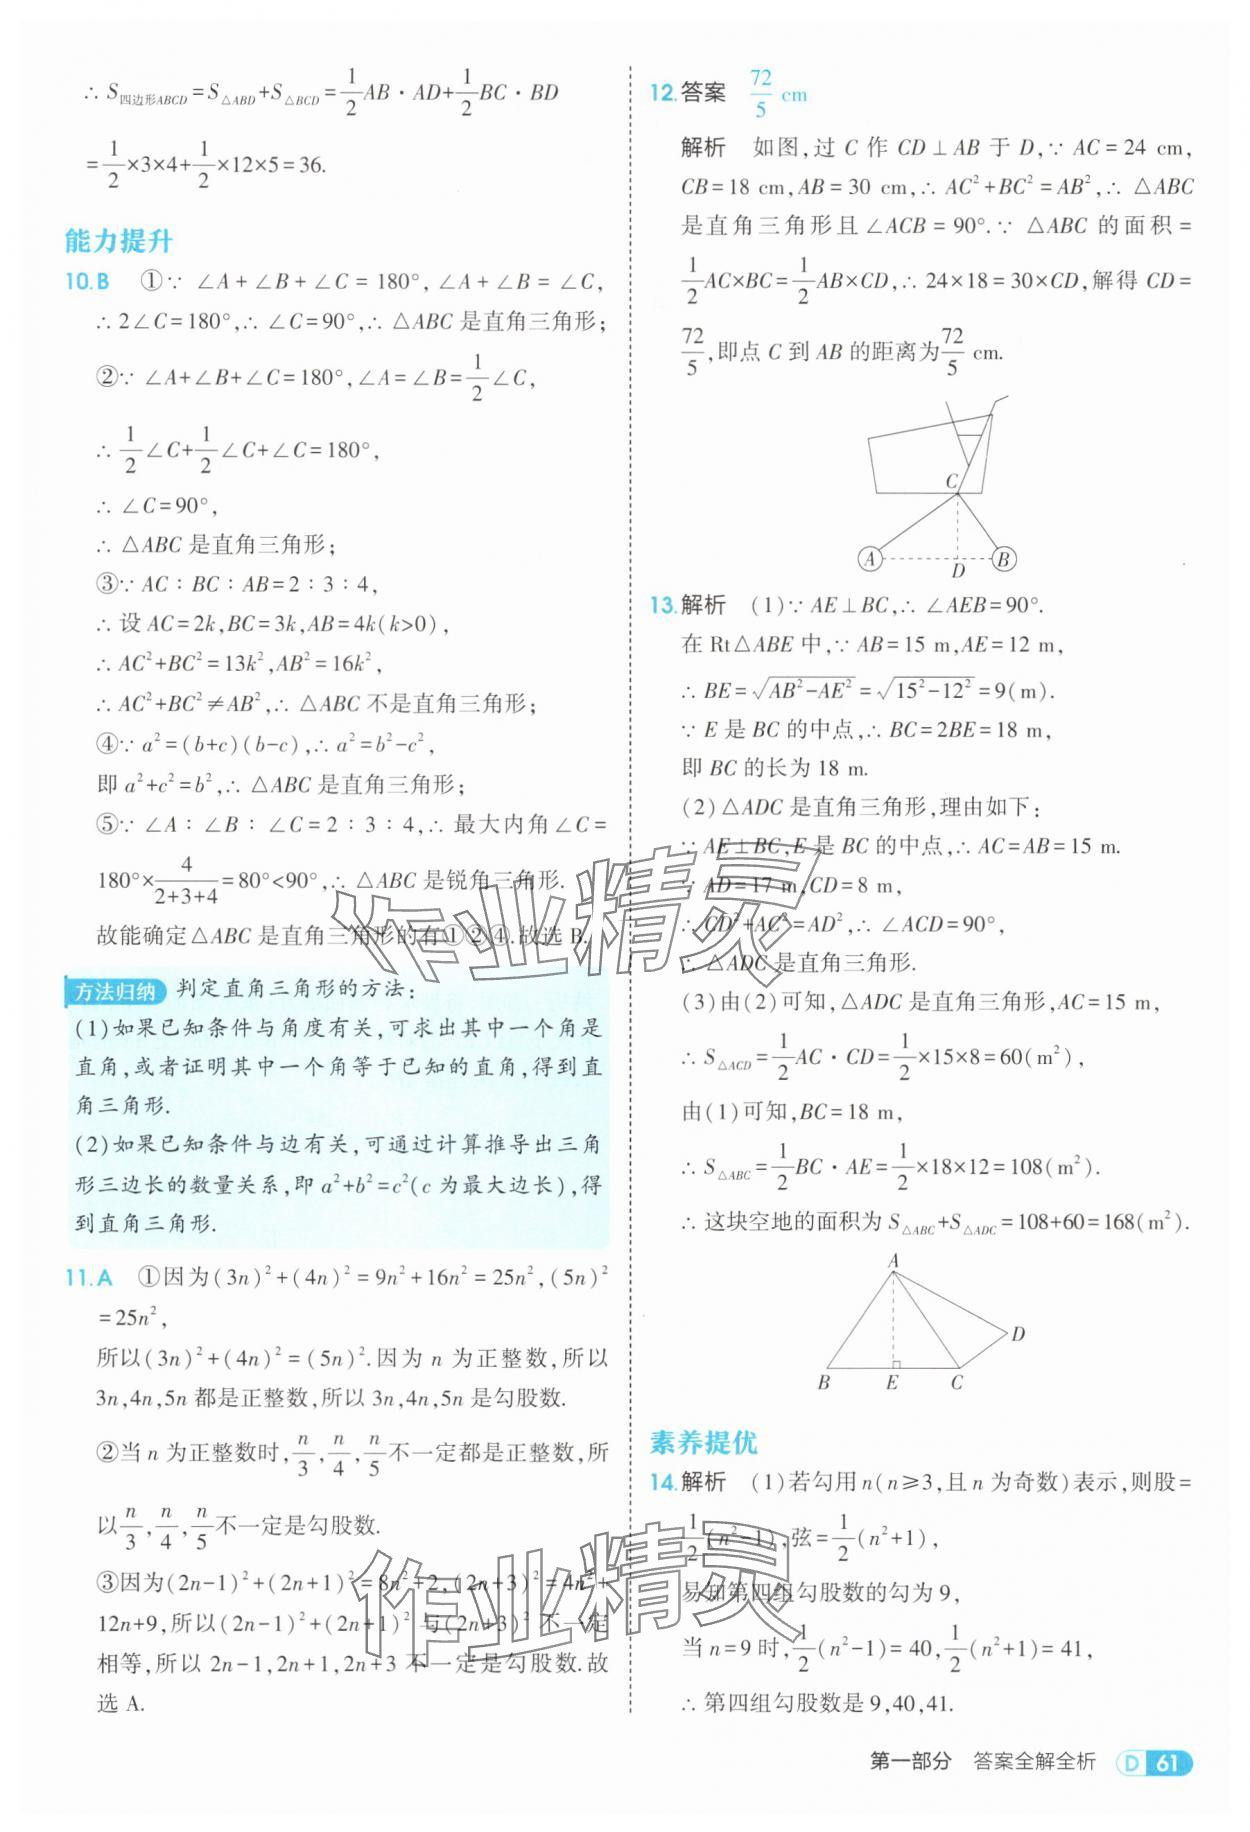 ∴ S四边形ABCD=S△ABD+S△BCD=1/2AB·AD+1/2BC·BD
=1/2×3×4+1/2×12×5=36.
能力提升
10.B ①∵ ∠A+∠B+∠C=180°,∠A+∠B=∠C,
∴ 2∠C=180°,∴ ∠C=90°,∴ △ABC 是直角三角形;
②∵ ∠A+∠B+∠C=180°,∠A=∠B=1/2∠C,
∴ 1/2∠C+1/2∠C+∠C=180°,
∴ ∠C=90°,
∴ △ABC 是直角三角形;
③∵ AC∶BC∶AB=2∶3∶4,
∴ 设 AC=2k,BC=3k,AB=4k(k>0),
∴ AC²+BC²=13k²,AB²=16k²,
∴ AC²+BC²≠AB²,∴ △ABC 不是直角三角形;
④∵ a²=(b+c)(b-c),∴ a²=b²-c²,
即 a²+c²=b²,∴ △ABC 是直角三角形;
⑤∵ ∠A∶∠B∶∠C=2∶3∶4,∴ 最大内角∠C=
180°×4/(2+3+4)=80°<90°,∴ △ABC 是锐角三角形.
故能确定△ABC 是直角三角形的有①②④.故选 B.
方法归纳 判定直角三角形的方法:
(1)如果已知条件与角度有关,可求出其中一个角是
直角,或者证明其中一个角等于已知的直角,得到直
角三角形.
(2)如果已知条件与边有关,可通过计算推导出三角
形三边长的数量关系,即 a²+b²=c²(c 为最大边长),得
到直角三角形.
11.A ①因为(3n)²+(4n)²=9n²+16n²=25n²,(5n)²
=25n²,
所以(3n)²+(4n)²=(5n)².因为 n 为正整数,所以
3n,4n,5n 都是正整数,所以 3n,4n,5n 是勾股数.
②当 n 为正整数时,n/3,n/4,n/5不一定都是正整数,所
以n/3,n/4,n/5不一定是勾股数.
③因为(2n-1)²+(2n+1)²=8n²+2,(2n+3)²=4n²+
12n+9,所以(2n-1)²+(2n+1)²与(2n+3)²不一定
相等,所以 2n-1,2n+1,2n+3 不一定是勾股数.故
选 A.
12.答案 72/5 cm
解析 如图,过 C 作 CD⊥AB 于 D,∵ AC=24 cm,
CB=18 cm,AB=30 cm,∴ AC²+BC²=AB²,∴ △ABC
是直角三角形且∠ACB=90°.∵ △ABC 的面积=
1/2AC×BC=1/2AB×CD,∴ 24×18=30×CD,解得 CD=
72/5,即点 C 到 AB 的距离为72/5 cm.
C
A
D
B
13.解析 (1)∵ AE⊥BC,∴ ∠AEB=90°.
在 Rt△ABE 中,∵ AB=15 m,AE=12 m,
∴ BE=√(AB²-AE²)=√(15²-12²)=9(m).
∵ E 是 BC 的中点,∴ BC=2BE=18 m,
即 BC 的长为 18 m.
(2)△ADC 是直角三角形,理由如下:
∵ AE⊥BC,E 是 BC 的中点,∴ AC=AB=15 m.
∵ AD=17 m,CD=8 m,
∴ CD²+AC²=AD²,∴ ∠ACD=90°,
∴ △ADC 是直角三角形.
(3)由(2)可知,△ADC 是直角三角形,AC=15 m,
∴ S△ACD=1/2AC·CD=1/2×15×8=60(m²),
由(1)可知,BC=18 m,
∴ S△ABC=1/2BC·AE=1/2×18×12=108(m²).
∴ 这块空地的面积为 S△ABC+S△ADC=108+60=168(m²).
A
D
B
E
C
素养提优
14.解析 (1)若勾用 n(n≥3,且 n 为奇数)表示,则股=
1/2(n²-1),弦=1/2(n²+1),
易知第四组勾股数的勾为 9,
当 n=9 时,1/2(n²-1)=40,1/2(n²+1)=41,
∴ 第四组勾股数是 9,40,41.
作业精灵
作业精灵
第一部分 答案全解全析 D 61